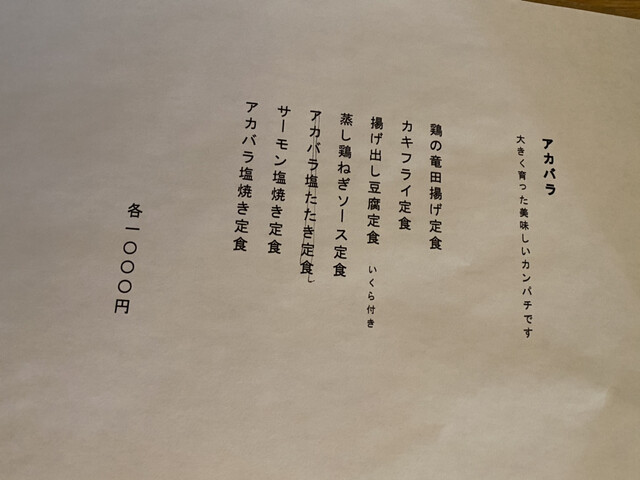 アカバラ
大きく育った美味しいカンパチです
鶏の竜田揚げ定食
カキフライ定食
揚げ出し豆腐定食 いくら付き
蒸し鶏ねぎソース定食
アカバラ塩たたき定食
サーモン塩焼き定食
アカバラ塩焼き定食
各一〇〇〇円